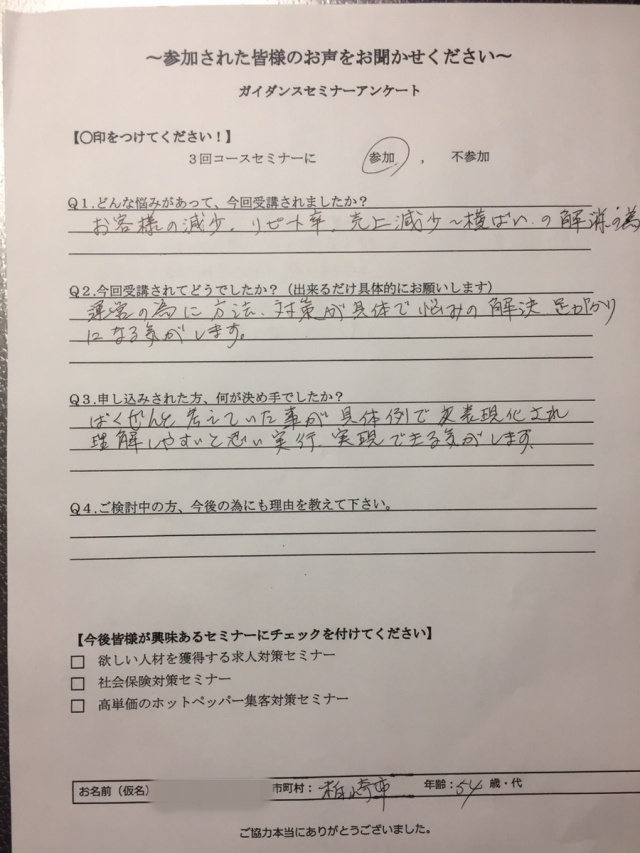 ～参加された皆様のお声をお聞かせください～
ガイダンスセミナーアンケート
【〇印をつけてください！】
３回コースセミナーに 参加 ， 不参加
Ｑ１.どんな悩みがあって、今回受講されましたか？
お客様の減少、リピート率、売上減少～横ばいの解消の為
Ｑ２.今回受講されてどうでしたか？（出来るだけ具体的にお願いします）
運営の為に方法、対策が具体で悩みの解決 足がかり
になる気がします。
Ｑ３.申し込みされた方、何が決め手でしたか？
ばくぜんと考えていた事が具体例で 表現化され
理解しやすいと思い実行、実現できる気がします。
Ｑ４.ご検討中の方、今後の為にも理由を教えて下さい。
【今後皆様が興味あるセミナーにチェックを付けてください】
欲しい人材を獲得する求人対策セミナー
社会保険対策セミナー
高単価のホットペッパー集客対策セミナー
お名前（仮名） 市町村：柏崎市 年齢：54 歳・代
ご協力本当にありがとうございました。